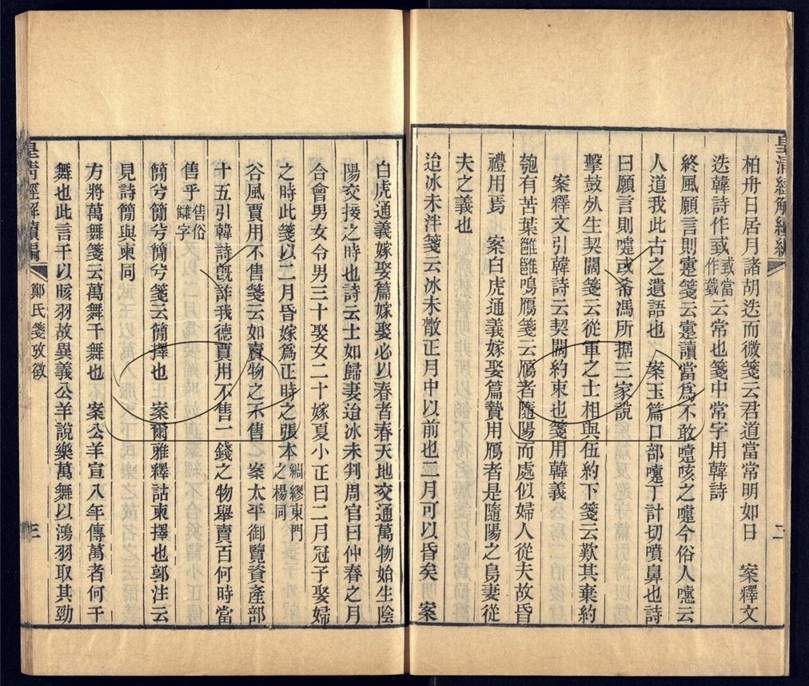 柏舟日居月諸胡迭而微箋云君道當常明如日　案釋文
迭韓詩作或或當作臷云常也箋中常字用韓詩
終風願言則疐箋云疐讀當爲不敢嚏咳之嚏今俗人嚏云
人道我此古之遺語也　案玉篇口部嚏丁計切噴鼻也詩
曰願言則嚏
擊鼓死生契闊箋云從軍之士相與伍約下箋云歎其棄約
案釋文引韓詩云契闊約束也箋用韓義
匏有苦葉雝雝鳴鴈箋云鴈者隨陽而處似婦人從夫故昏
禮用焉　案白虎通義嫁娶篇贄用鴈者是隨陽之鳥妻從
夫之義也
迨冰未泮箋云冰未散正月中以前也二月可以昏矣　案
白虎通義嫁娶篇嫁娶必以春者春天地交通萬物始生陰
陽交接之時也詩云士如歸妻迨冰未判周官曰仲春之月
合會男女令男三十娶女二十嫁夏小正曰二月冠子娶婦
之時此箋以二月昏嫁爲正時之張本綢繆東門之楊同
谷風賈用不售箋云如賣物之不售　案太平御覽資產部
十五引韓詩旣詐我德賈用不售一錢之物舉賣百何時當
售乎售俗讎字
簡兮簡兮簡兮箋云簡擇也　案爾雅釋詁柬擇也郭注云
見詩簡與柬同
方將萬舞箋云萬舞干舞也　案公羊宣八年傳萬者何干
舞也此言干以晐羽故異義公羊說樂萬舞以鴻羽取其勁
皇清經解續編
鄭氏箋攷徵
三